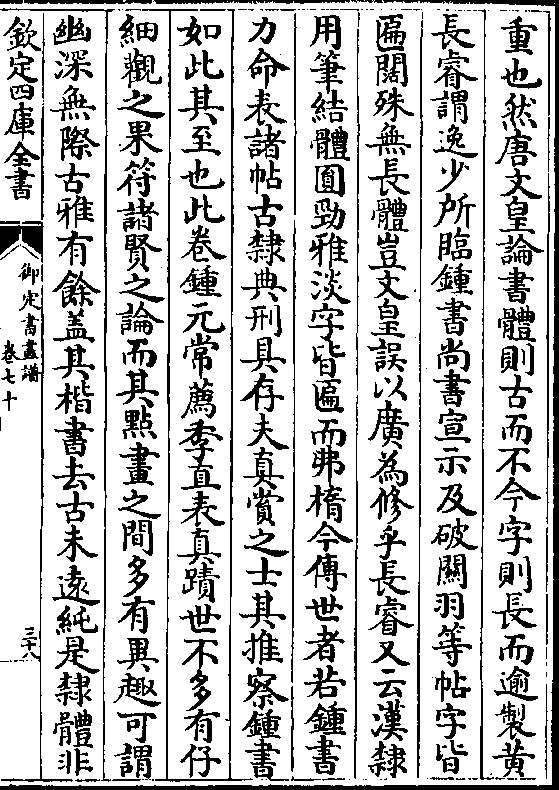 重也然唐文皇論書體則古而不今字則長而逾製黄
長睿謂逸少所臨鍾書尚書宣示及破關羽等帖字皆
匾闊殊無長體豈文皇誤以廣為修乎長睿又云漢隸
用筆結體圓勁雅淡字皆匾而弗橢今傳世者若鍾書
力命表諸帖古隸典刑具存夫真賞之士其推察鍾書
如此其至也此卷鍾元常薦季直表真蹟世不多有仔
細觀之果符諸賢之論而其點畫之間多有異趣可謂
幽深無際古雅有餘盖其楷書去古未遠純是隸體非
欽定四庫全書
御定書畫譜
卷七十
三十八